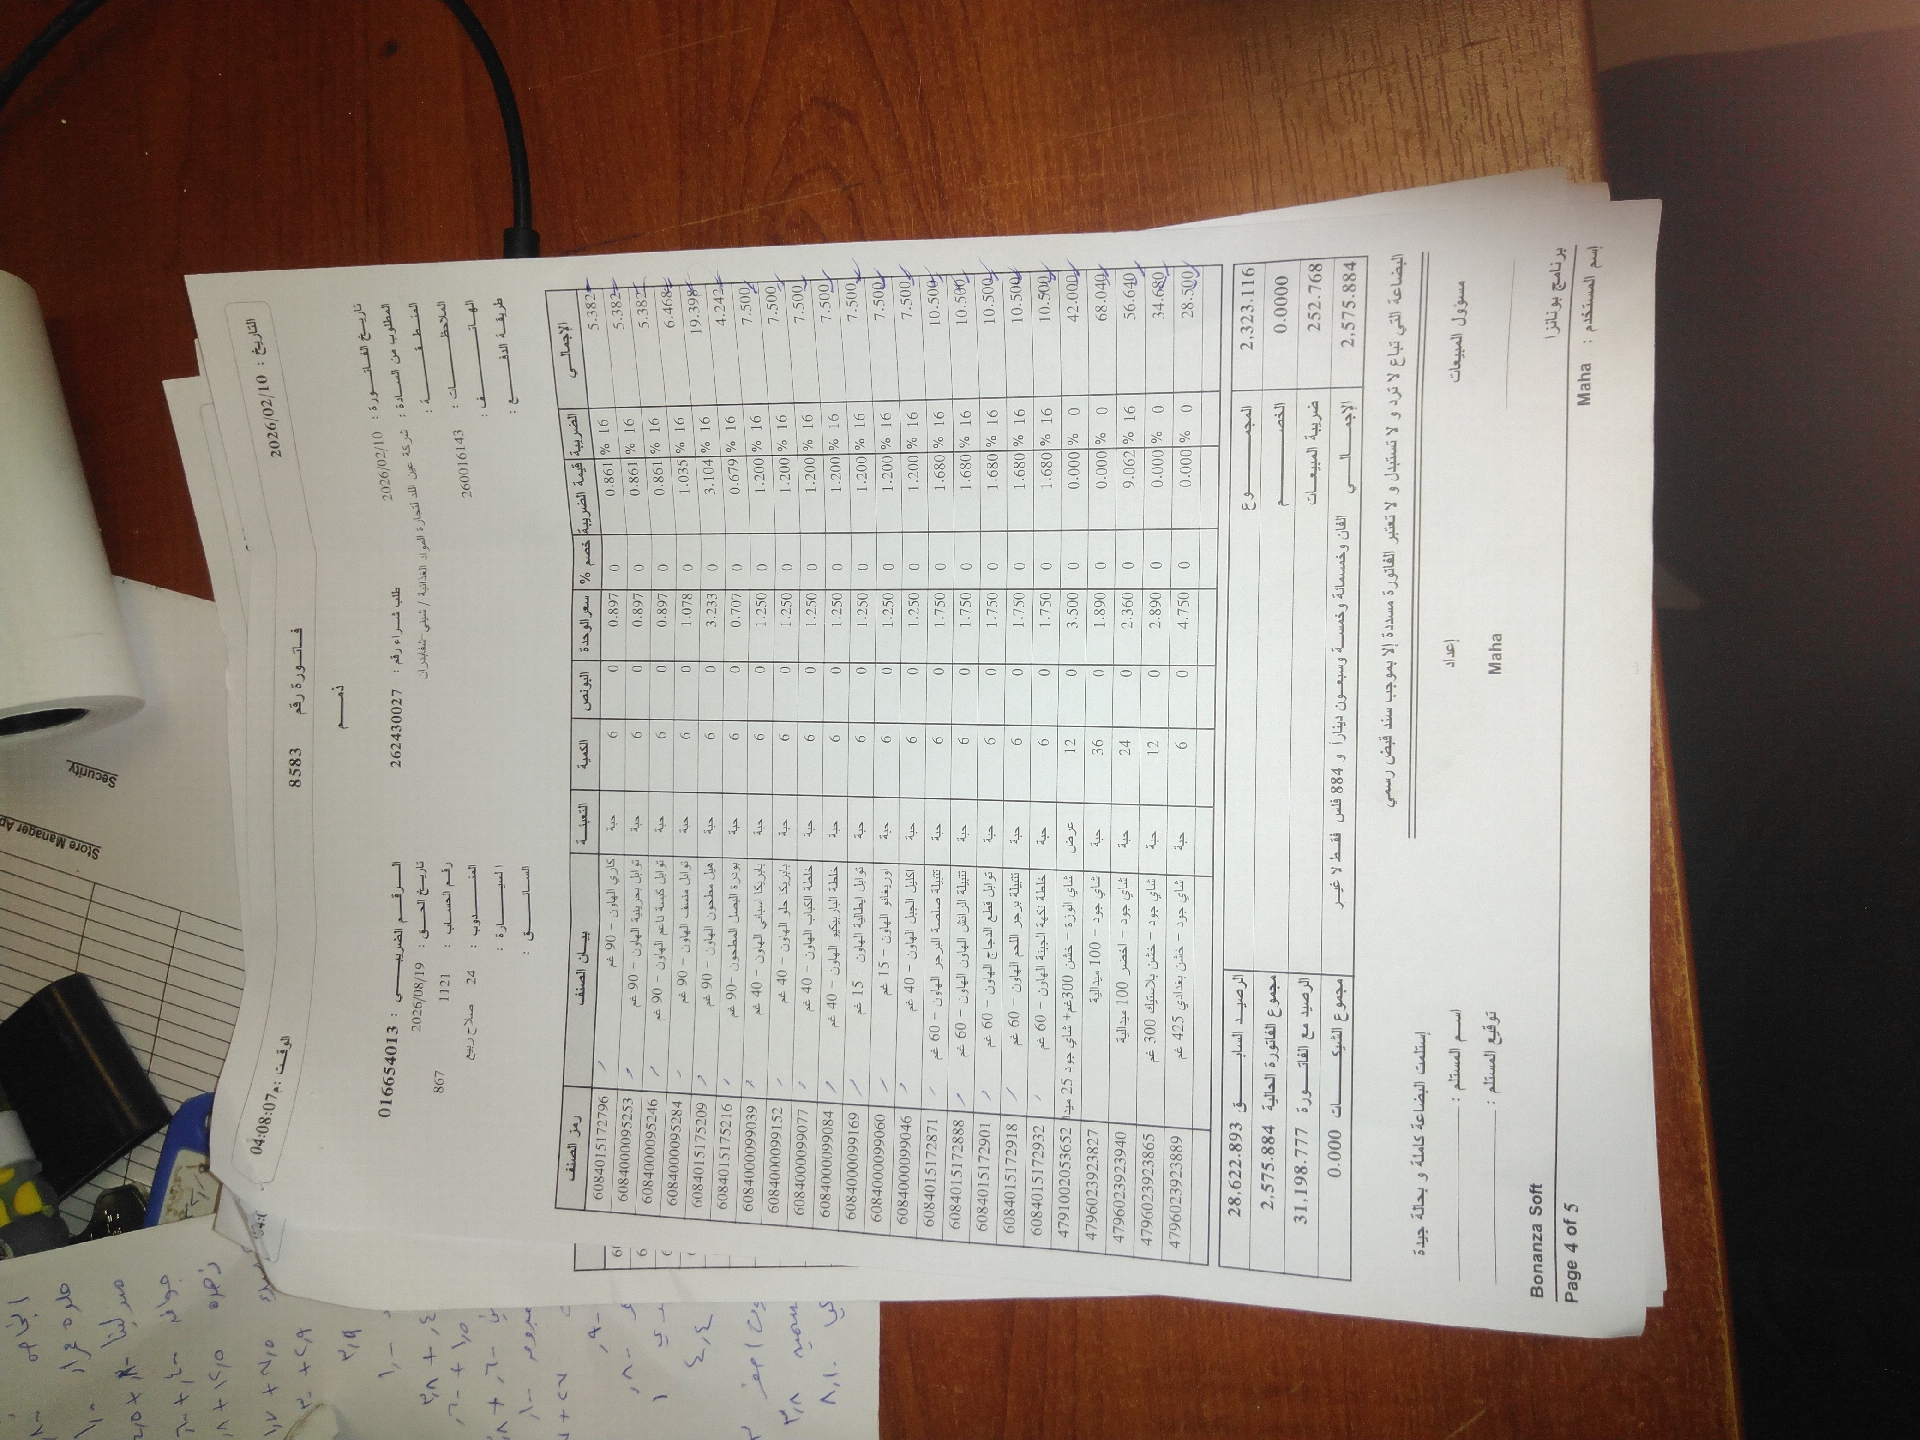 التاريخ : 2026/02/10
الوقت : م04:08:07
فـاتـورة رقم 8583
ذمـم
تاريخ الفاتورة : 2026/02/10
طلب شراء رقم : 262430027
الرقم الضريبي : 016654013
المطلوب من السادة : شركة عين اللد لتجارة المواد الغذائية / شيني-شفابدران
تاريخ الحق : 2026/08/19
المنطقة :
رقم الحساب : 1121 867
الملاحظات : 260016143
المندوب : 24 صلاح ربيع
الهاتف :
السيارة :
طريقة الدفع :
السائق :
رمز الصنف بيـان الصنف التعبئة الكمية البونص سعر الوحدة خصم % قيمة الضريبة الضريبة الإجمالي
6084015172796 كاري الهاون - 90 غم حبة 6 0 0.897 0 0.861 % 16 5.382
6084000095253 توابل بحرينية الهاون - 90 غم حبة 6 0 0.897 0 0.861 % 16 5.382
6084000095246 توابل كبسة ناعم الهاون - 90 غم حبة 6 0 0.897 0 0.861 % 16 5.382
6084000095284 توابل منسف الهاون - 90 غم حبة 6 0 1.078 0 1.035 % 16 6.468
6084015175209 هيل مطحون الهاون - 90 غم حبة 6 0 3.233 0 3.104 % 16 19.398
6084015175216 بودرة البصل المطحون - 90 غم حبة 6 0 0.707 0 0.679 % 16 4.242
6084000099039 بابريكا اسباني الهاون - 40 غم حبة 6 0 1.250 0 1.200 % 16 7.500
6084000099152 بابريكا حلو الهاون - 40 غم حبة 6 0 1.250 0 1.200 % 16 7.500
6084000099077 خلطة الكباب الهاون - 40 غم حبة 6 0 1.250 0 1.200 % 16 7.500
6084000099084 خلطة الباربيكيو الهاون - 40 غم حبة 6 0 1.250 0 1.200 % 16 7.500
6084000099169 توابل ايطالية الهاون - 15 غم حبة 6 0 1.250 0 1.200 % 16 7.500
6084000099060 اوريغانو الهاون - 15 غم حبة 6 0 1.250 0 1.200 % 16 7.500
6084000099046 اكليل الجبل الهاون - 40 غم حبة 6 0 1.250 0 1.200 % 16 7.500
6084015172871 تتبيلة صلصة البرجر الهاون - 60 غم حبة 6 0 1.750 0 1.680 % 16 10.500
6084015172888 تتبيلة الرانش الهاون الهاون - 60 غم حبة 6 0 1.750 0 1.680 % 16 10.500
6084015172901 توابل قطع الدجاج الهاون - 60 غم حبة 6 0 1.750 0 1.680 % 16 10.500
6084015172918 تتبيلة برجر اللحم الهاون - 60 غم حبة 6 0 1.750 0 1.680 % 16 10.500
6084015172932 خلطة نكهة الجبنة الهاون - 60 غم حبة 6 0 1.750 0 1.680 % 16 10.500
4791002053652 شاي الوزة - خشن 300غم+ شاي جود 25 ميدا عرض 12 0 3.500 0 0.000 % 0 42.000
4796023923827 شاي جود - 100 ميدالية حبة 36 0 1.890 0 0.000 % 0 68.040
4796023923940 شاي جود - اخضر 100 ميدالية حبة 24 0 2.360 0 9.062 % 16 56.640
4796023923865 شاي جود - خشن بلاستيك 300 غم حبة 12 0 2.890 0 0.000 % 0 34.680
4796023923889 شاي جود - خشن بغدادي 425 غم حبة 6 0 4.750 0 0.000 % 0 28.500
الرصيد السابق 28,622.893 المجموع 2,323.116
مجموع الفاتورة الحالية 2,575.884 الخصم 0.0000
الرصيد مع الفاتورة 31,198.777 ضريبة المبيعات 252.768
مجموع الشيكات 0.000 الفان وخمسمائة وخمسة وسبعون دينارا و 884 فلس فقط لا غير الإجمالي 2,575.884
البضاعة التي تباع لا ترد و لا تستبدل و لا تعتبر الفاتورة مسددة إلا بموجب سند قبض رسمي
إستلمت البضاعة كاملة و بحالة جيدة
إعداد
مسؤول المبيعات
اسم المستلم :
توقيع المستلم :
Maha
Bonanza Soft
برنامج بونانزا
Page 4 of 5
إسم المستخدم : Maha
Security
Store Manager Ap